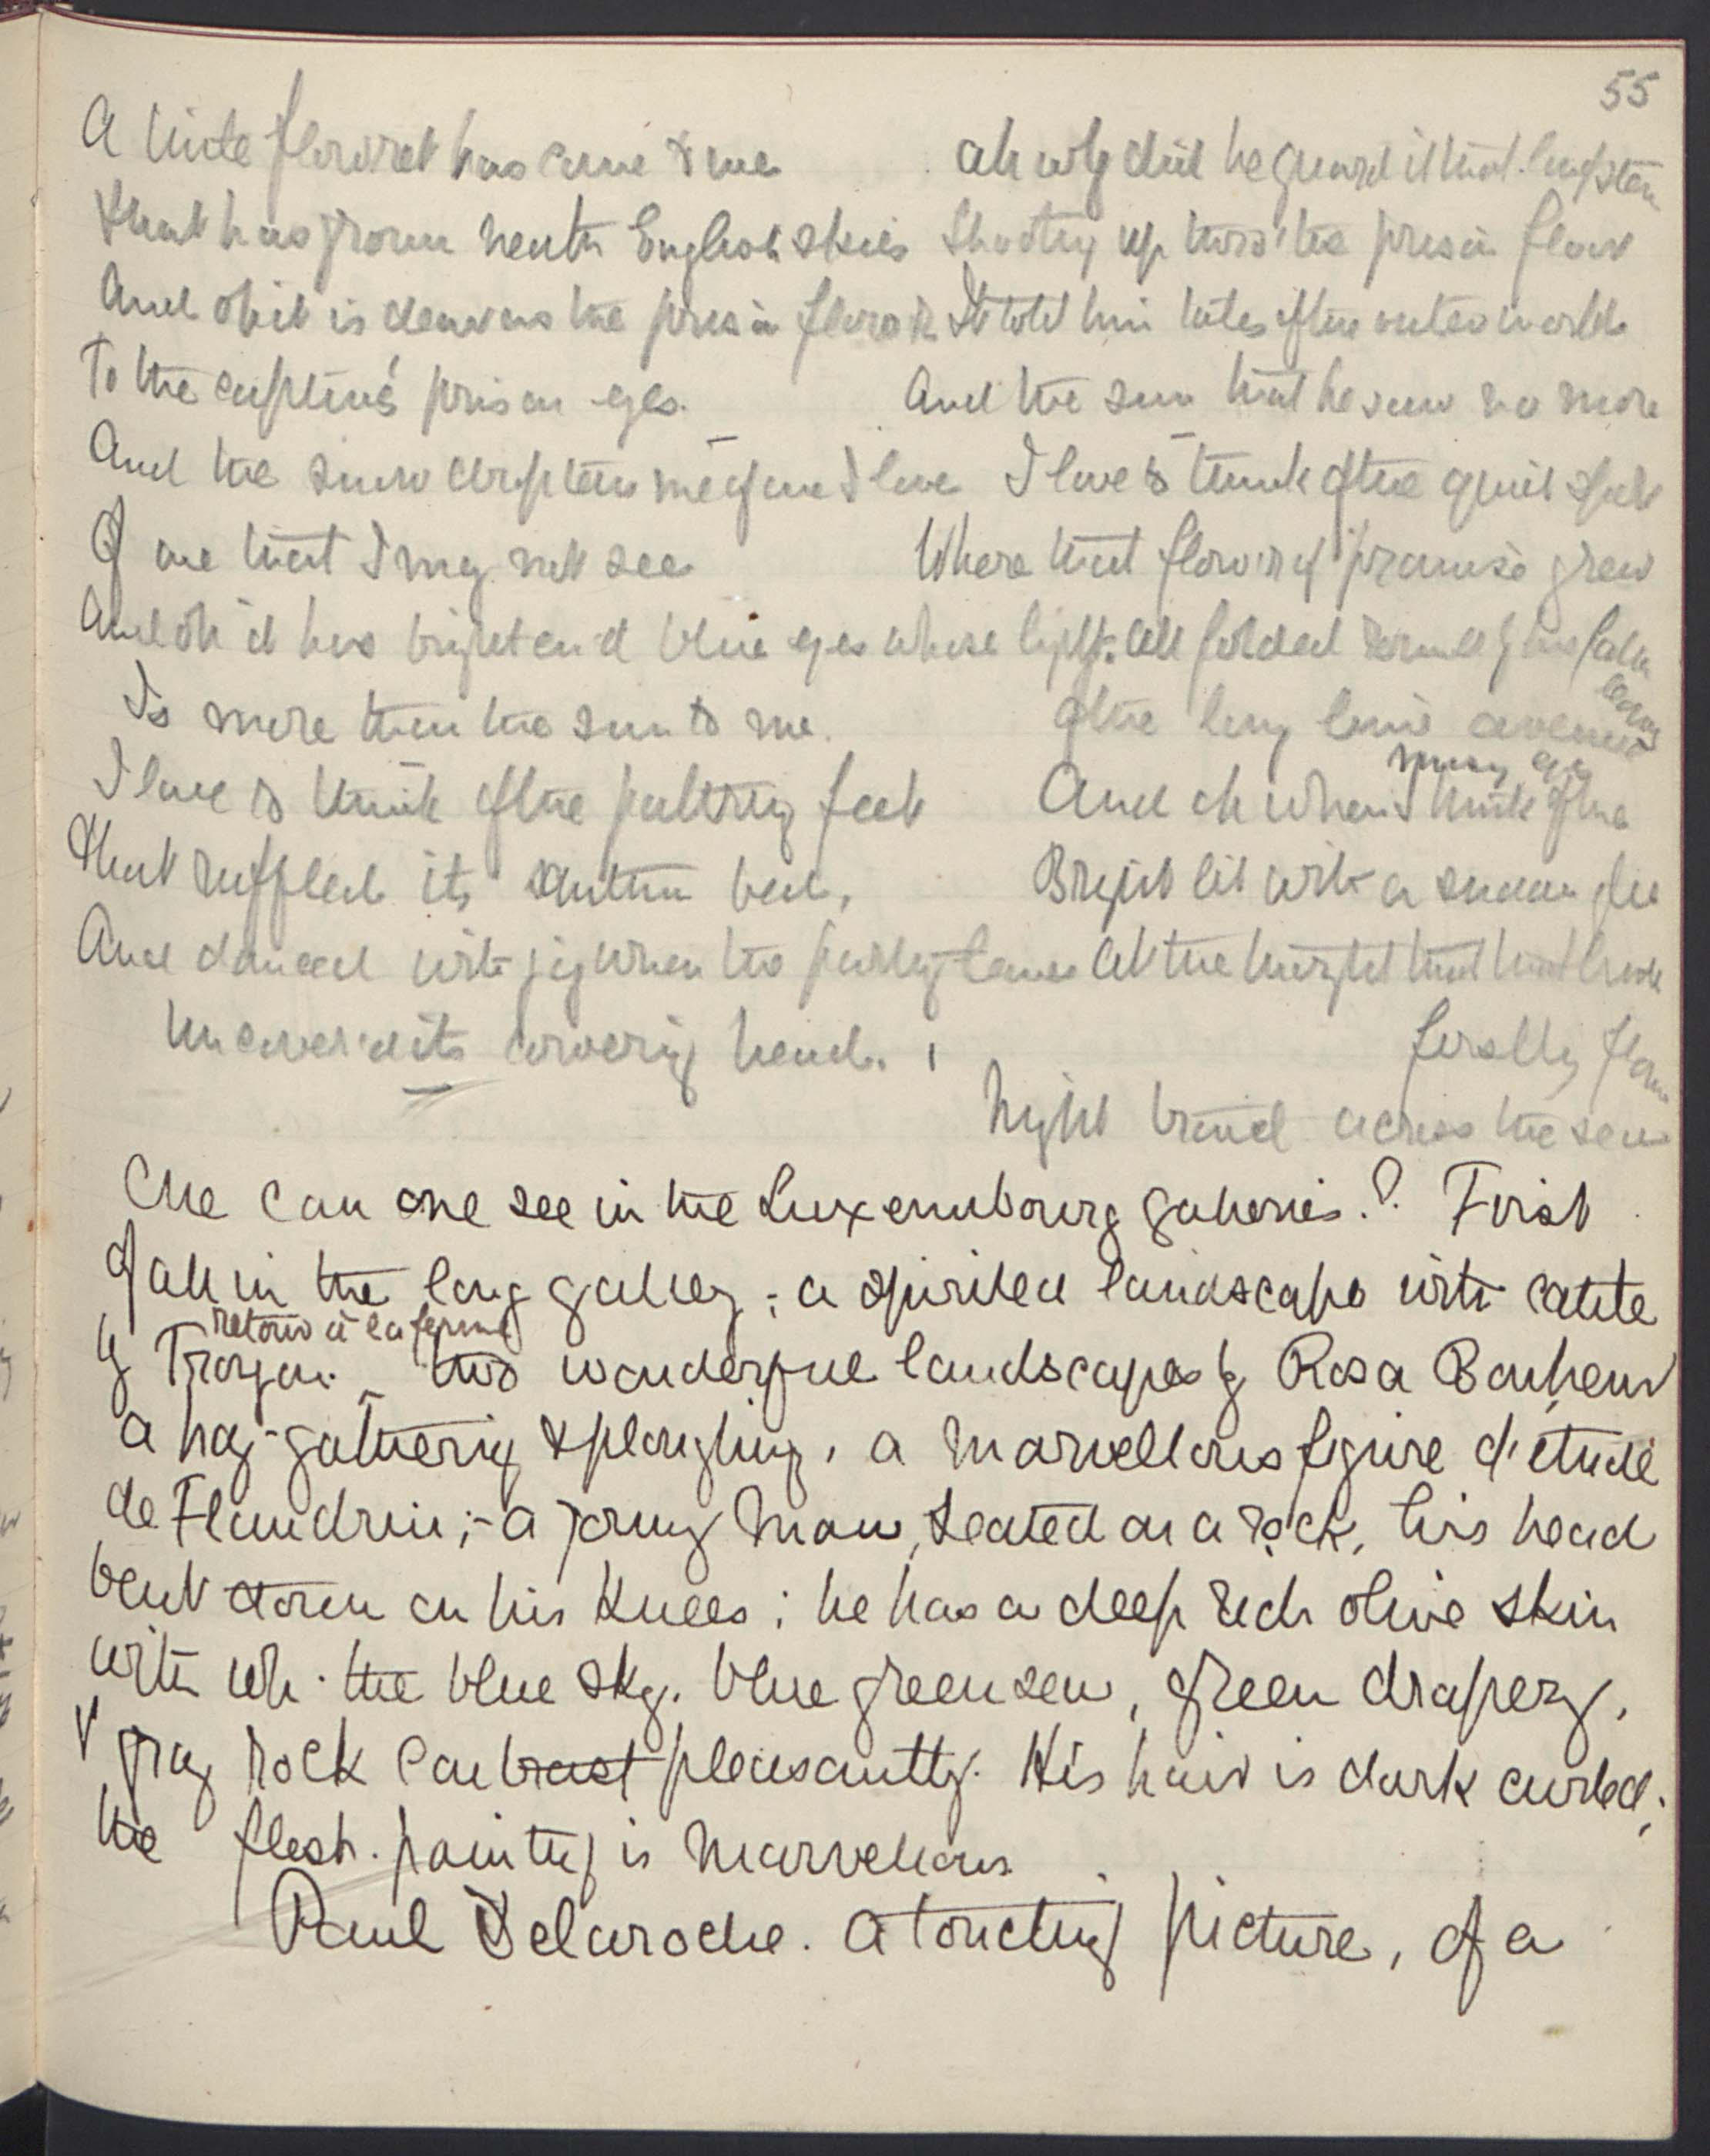 55
A little flow'ret has come to me
That has grown neath English skies
And oh it is dear as the prison flower
To the captive's prison eyes.
And the snow drop tells me of one I love
Of one that I may not see
And oh it has brighten'd blue eyes whose light
Is more than the sun to me.
I love to think of the pattering feet
That ruffled its autumn bed,
And danced with joy when the parting leaves
Uncover'd its cowering head.
Ah why did he guard it that
Shooting up thro' the prison floor
It told him tales of the outer world
And the sun that he saw no more
I love to think of the quiet spot
Where that flow'r of promise grew
All folded round by the fallen leaves
Of the long lime avenue
And oh when I think of the many eyes
Bright lit with a sudden glee
At the thought that that frail
firstly flower
Might travel across the sea
One can one see in the Luxembourg galleries.? First
of all in the long gallery; a spirited landscape with cattle
by Troyon retour à la ferme two wonderful landscapes by Rosa Bonheur
a hay-gathering & ploughing, a marvellous figure d'étude
de Flandrin;- a young man, seated on a rock, his head
bent down on his knees; he has a deep rich olive skin
with wh. the blue sky, blue green sea, green drapery,
& gray rock contrast pleasantly. His hair is dark curled;
the flesh-painting is marvellous
Paul Delaroche. A touching picture, of a